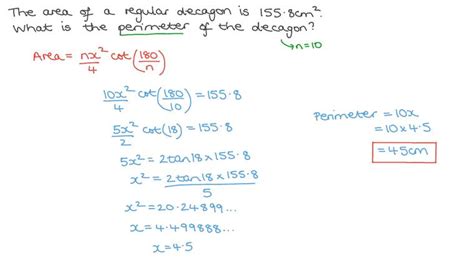 The area of a regular decagon is 155.8cm².
What is the perimeter of the decagon?
↳n=10
Area = nx²/4 cot(180/n)
10x²/4 cot(180/10) = 155.8
5x²/2 cot(18) = 155.8
5x² = 2tan18 × 155.8
x² = 2tan18 × 155.8/5
x² = 20.24899...
x = 4.499888...
x = 4.5
Perimeter = 10x
= 10 × 4.5
= 45cm